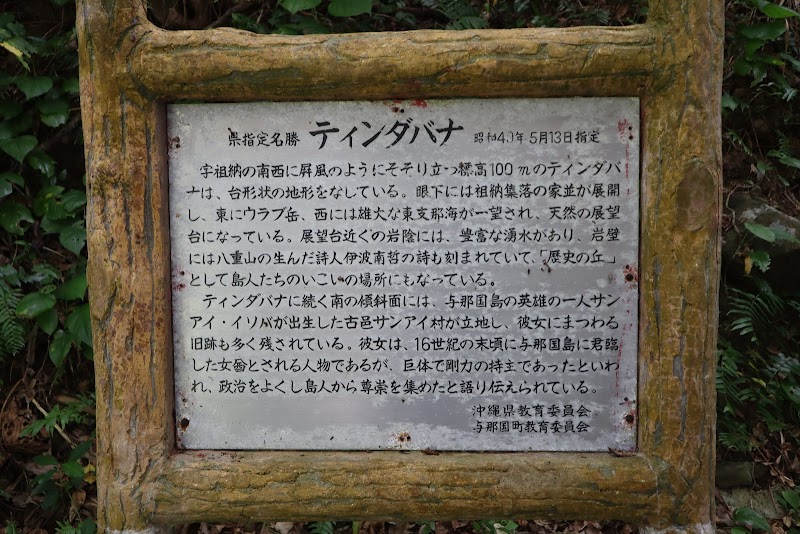 県指定名勝 ティンダバナ 昭和4.0年5月13日指定
字祖納の南西に屛風のようにそそり立つ標高100mのティンダバ
ナは、台形状の地形をなしている。眼下には祖納集落の家並が展開
し、東にウラブ岳、西には雄大な東支那海が一望され、天然の展望
台になっている。展望台近くの岩陰には、豊富な湧水があり、岩壁
には八重山の生んだ詩人伊波南哲の詩も刻まれていて、「歴史の丘」
として島人たちのいこいの場所にもなっている。
ティンダバナに続く南の傾斜面には、与那国島の英雄の一人サン
アイ・イソバが出生した古邑サンアイ村が立地し、彼女にまつわる
旧跡も多く残されている。彼女は、16世紀の末頃に与那国島に君臨
した女酋とされる人物であるが、巨体で剛力の持主であったといわ
れ、政治をよくし島人から尊崇を集めたと語り伝えられている。
沖縄県教育委員会
与那国町教育委員会